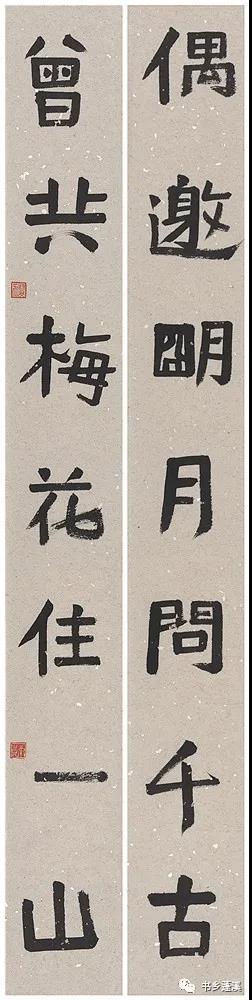 偶邀朙月問千古
曾共梅花住一山
书乡蓬溪